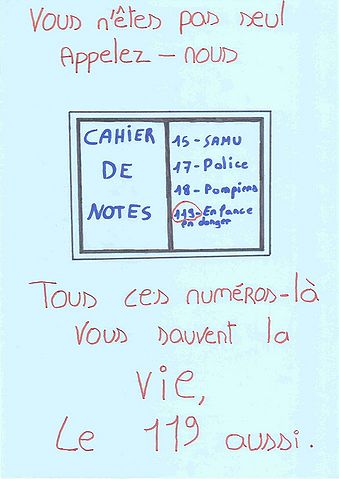 Vous n'êtes pas seul
Appelez-nous
CAHIER
DE
NOTES
15-SAMU
17-Police
18-Pompiers
119-Enfance
en danger
Tous ces numéros-là
vous sauvent la
vie,
Le 119 aussi.